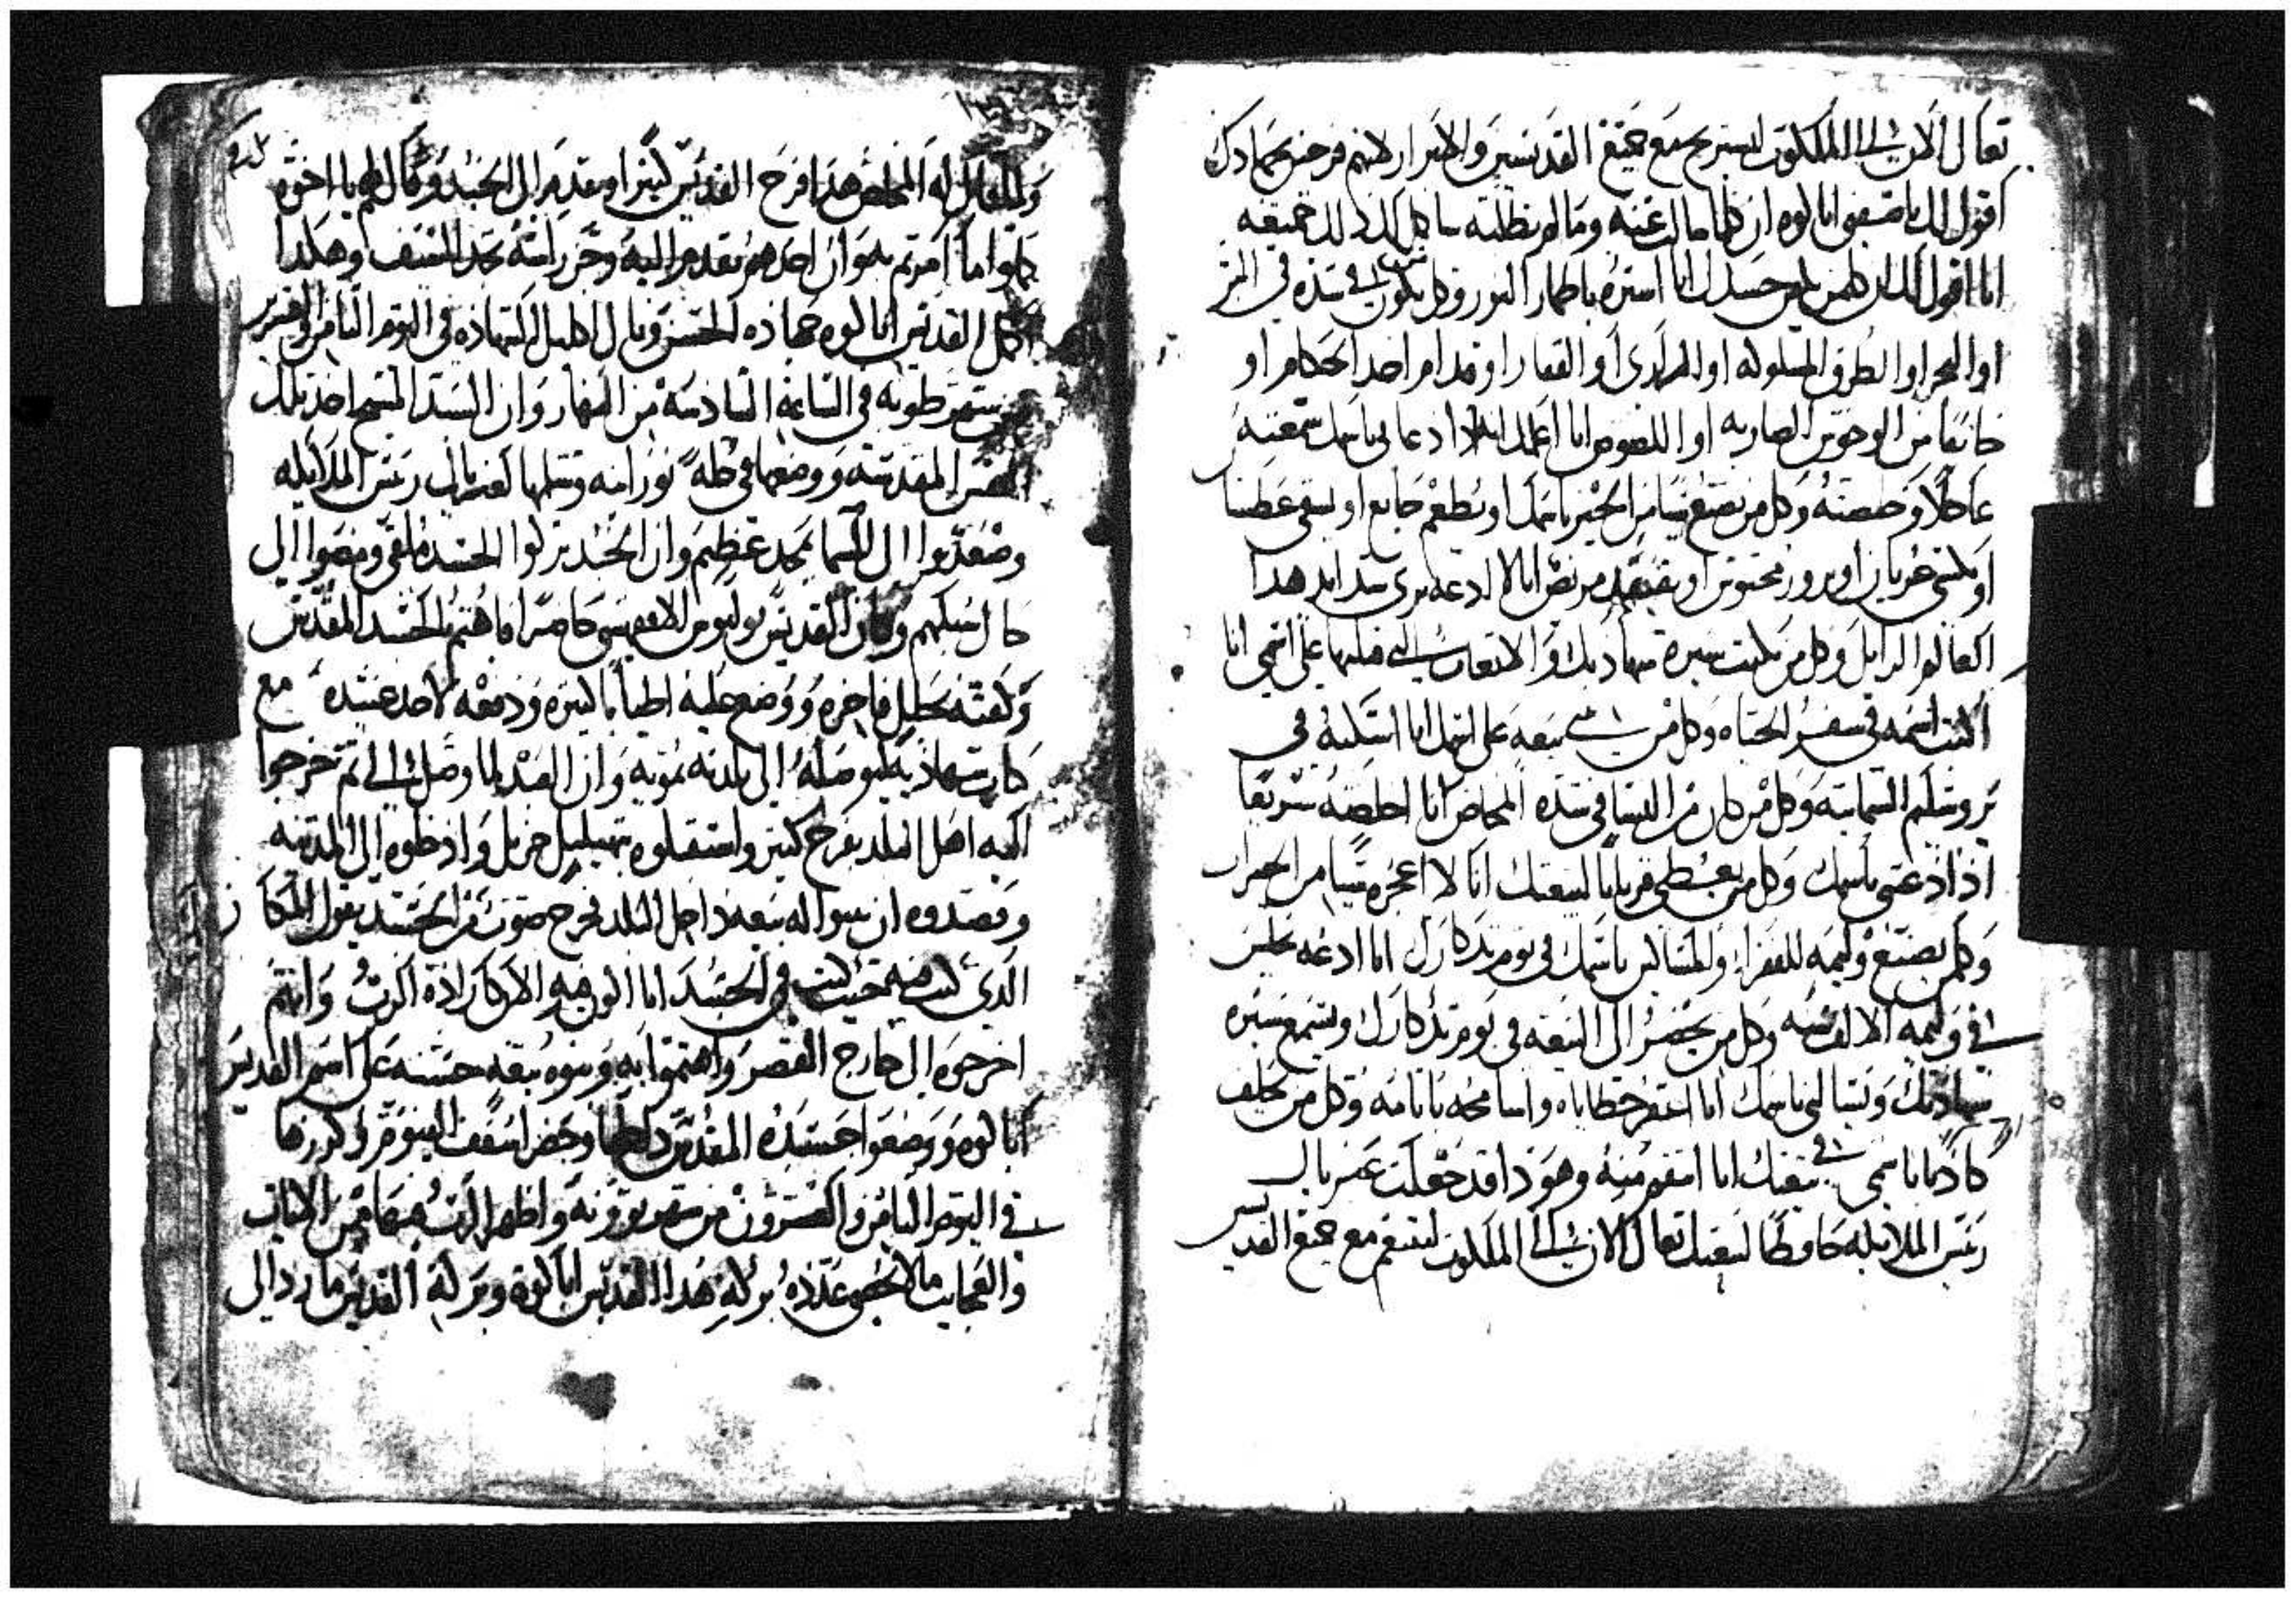 تعال الان الى الملكوت لتستريح مع جميع القديسين والابرار لانهم فرحين بجهادك
اقول لك يا صفيي ابالوه ان كلما سالت عنه وما لم تطلبه ساكمل لك ذلك جميعه
انا اقول لك ان كلمن يكفن جسدك انا استره باطهار النور وكل من يكون في شده في البر
او البحر او الطرق المسلوكه او البراري او القفار او قدام احد الحكام او
خايفا من الوحوش الضاريه او اللصوص انا اعلمك انه اذا دعاني باسمك سمعته
عاجلا وخلصته وكل من يصنع شيا من الخير باسمك او يطعم جايع او يسقي عطشنا
او يكسي عريان او يزور محبوس او يفتقد مريض انا لا ادعه يرى شدايد هذا
العالم الزايل وكل من يكتب سيرة شهادتك والاتعاب التي قبلتها على اسمي انا
اكتب اسمه في سفر الحياه وكل من يبني بيعه على اسمك انا اسكنه في
يروشليم السمايية وكل من كان من النسا في شدة المخاض انا اخلصه سريعا
اذا دعتني باسمك وكل من يعطي قربانا لبيعتك انا لا اعجزه شيا من الخيرات
وكلمن يصنع وليمه للفقراء والمساكين باسمك في يوم تذكارك انا ادعه يجلس
في وليمة الالف سنه وكل من يحضر الى البيعه في يوم تذكارك ويسمع سيرة
شهادتك ويسالني باسمك انا اغفر خطاياه واسامحه باثامه وكل من يحلف
كاذبا باسمي في بيعتك انا انتقم منه وهوذا قد جعلت غبريال
رييس الملايكه حافظا لبيعتك تعال الان الى الملكوت لتتنعم مع جميع القديسين
ولما قال له المخلص هذا فرح القديس كثيرا وتقدم الى الجند وقال لهم يا اخوه
كملوا ما امرتم به وان احدهم تقدم اليه وحز راسه بحد السيف وهكذا
اكمل القديس ابالوه جهاده الحسن ونال اكليل الشهاده في اليوم الثامن والعشرين
من شهر طوبه في الساعة السادسه من النهار وان السيد المسيح اخذ تلك
النفس المقدسه ووضعها في حله نورانيه وسلمها لغبريال رييس الملايكه
وصعدوا الى السما بمجد عظيم وان الجند تركوا الجسد ملقى ومضوا الى
حال سبيلهم وكان القديس يوليوس الاقفهصي حاضرا فاهتم بالجسد المقدس
وكفنه بحلل فاخره ووضع عليه اطيابا كثيره ودفعه لاحد عبيده مع
كتاب شهادته ليوصله الى بلدته بنويه وان العبد لما وصل الى ثم خرجوا
اليه اهل البلد بفرح كثير واستقبلوه بتهليل جزيل وادخلوه الى المدينه
وقصدوه ان يبنوا له بيعه داخل البلد فخرج صوت من الجسد يقول المكان
الذي كنت فيه حيث كنت في الجسد انا اكون فيه الان كارادة الرب وانتم
اخرجوه الى خارج القصر واهتموا به وبنوه بيعه حسنه على اسم القديس
ابالوه ووضعوا جسده المقدس داخلها وحضر اسقف الفيوم وكرزها
في اليوم الثامن والعشرون من شهر بوونه واظهر الرب فيها من الايات
والعجايب ما لا يحصى عدده بركة هذا القديس ابالوة وبركة القديس ماري